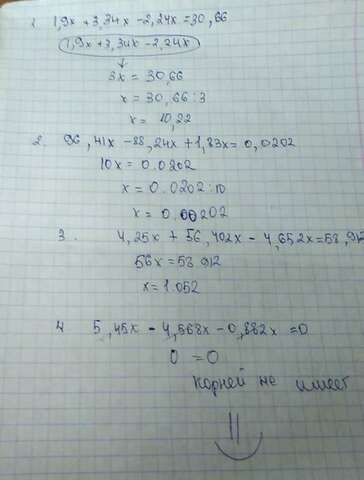 1. 1,9x + 3,34x - 2,24x = 30,66
1,9x + 3,34x - 2,24x
↓
3x = 30,66
x = 30,66 : 3
x = 10,22
2. 96,41x - 88,24x + 1,83x = 0,0202
10x = 0.0202
x = 0.0202 : 10
x = 0.00202
3. 4,25x + 56,402x - 4,652x = 58,912
56x = 58,912
x = 1.052
4 5,45x - 4,568x - 0,882x = 0
0 = 0
Корней не имеет